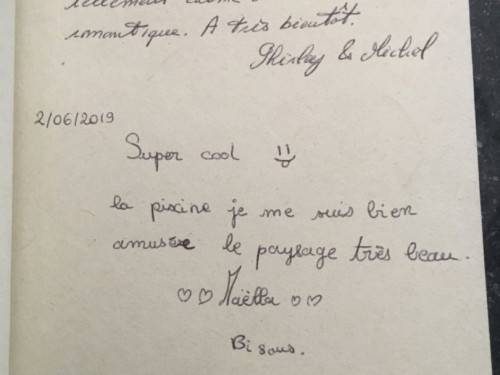 romantique. A très bientôt.
Shirley & Michel
2/06/2019
Super cool
la piscine je me suis bien
amusée le paysage très beau.
Maëlla
Bisous.